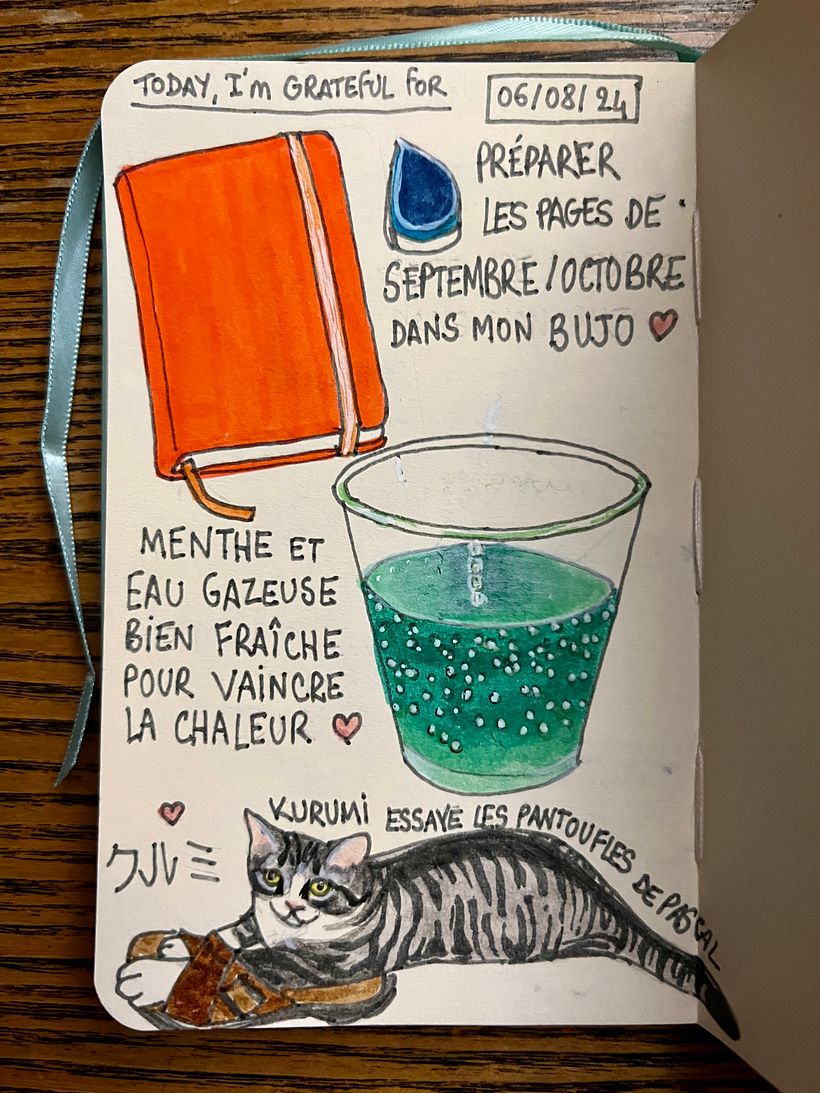 TODAY, I'm GRATEFUL FOR
06/08/24
PRÉPARER
LES PAGES DE
SEPTEMBRE/OCTOBRE
DANS MON BUJO
MENTHE ET
EAU GAZEUSE
BIEN FRAÎCHE
POUR VAINCRE
LA CHALEUR
KURUMI ESSAYE LES PANTOUFLES DE PASCAL
クルミ